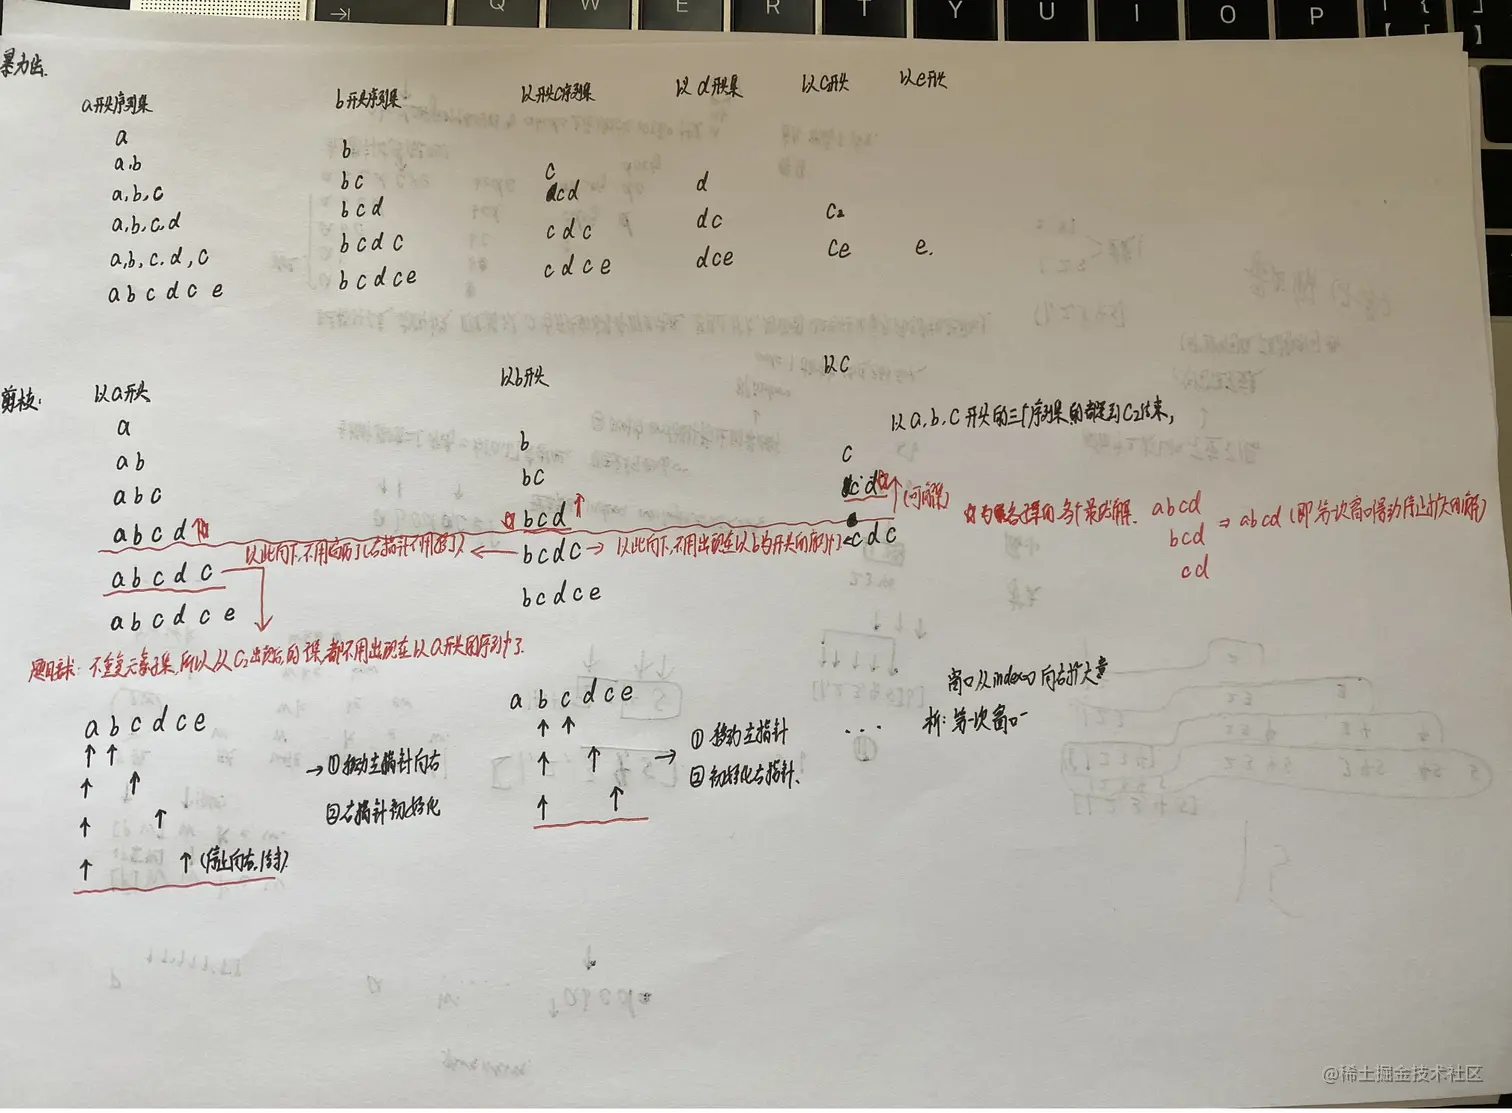 Q W E R T Y U I O P
暴力法.
a开头序列集 b开头序列集. 以开头c序列集 以d开头集 以C开头 以e开头
a
a,b
a,b,c
a,b,c,d
a,b,c.d,c
a b c d c e
b
bc
bcd
bcdc
bcdce
c
cd
cdc
cdce
d
dc
dce
C2
ce
e.
剪枝: 以a开头 以b开头 以C
a
ab
abc
abcd
abcdc
abcdce
b
bc
bcd
bcdc
bcdce
c
cd (可解)
cdc
以a,b,c开头的三个序列集的都是到C2结束,
各子集的各个最优解. abcd
bcd ⇒ abcd (即第一次窗口滑动停止扩大的解)
cd
以此向下,不用遍历了(右指针不用移了)
以此向下,不用出现在以b为开头的序列中了
题目要求: 不重复元素子集,所以从C2出现后,的误,都不用出现在以a开头的序列中了.
abcdce
→ ①移动左指针向右
②右指针初始化
(停止向右,结束).
abcdce
→ ① 移动左指针
② 初始化右指针.
...
窗口从index=0向右扩大
析: 第一次窗口
@稀土掘金技术社区